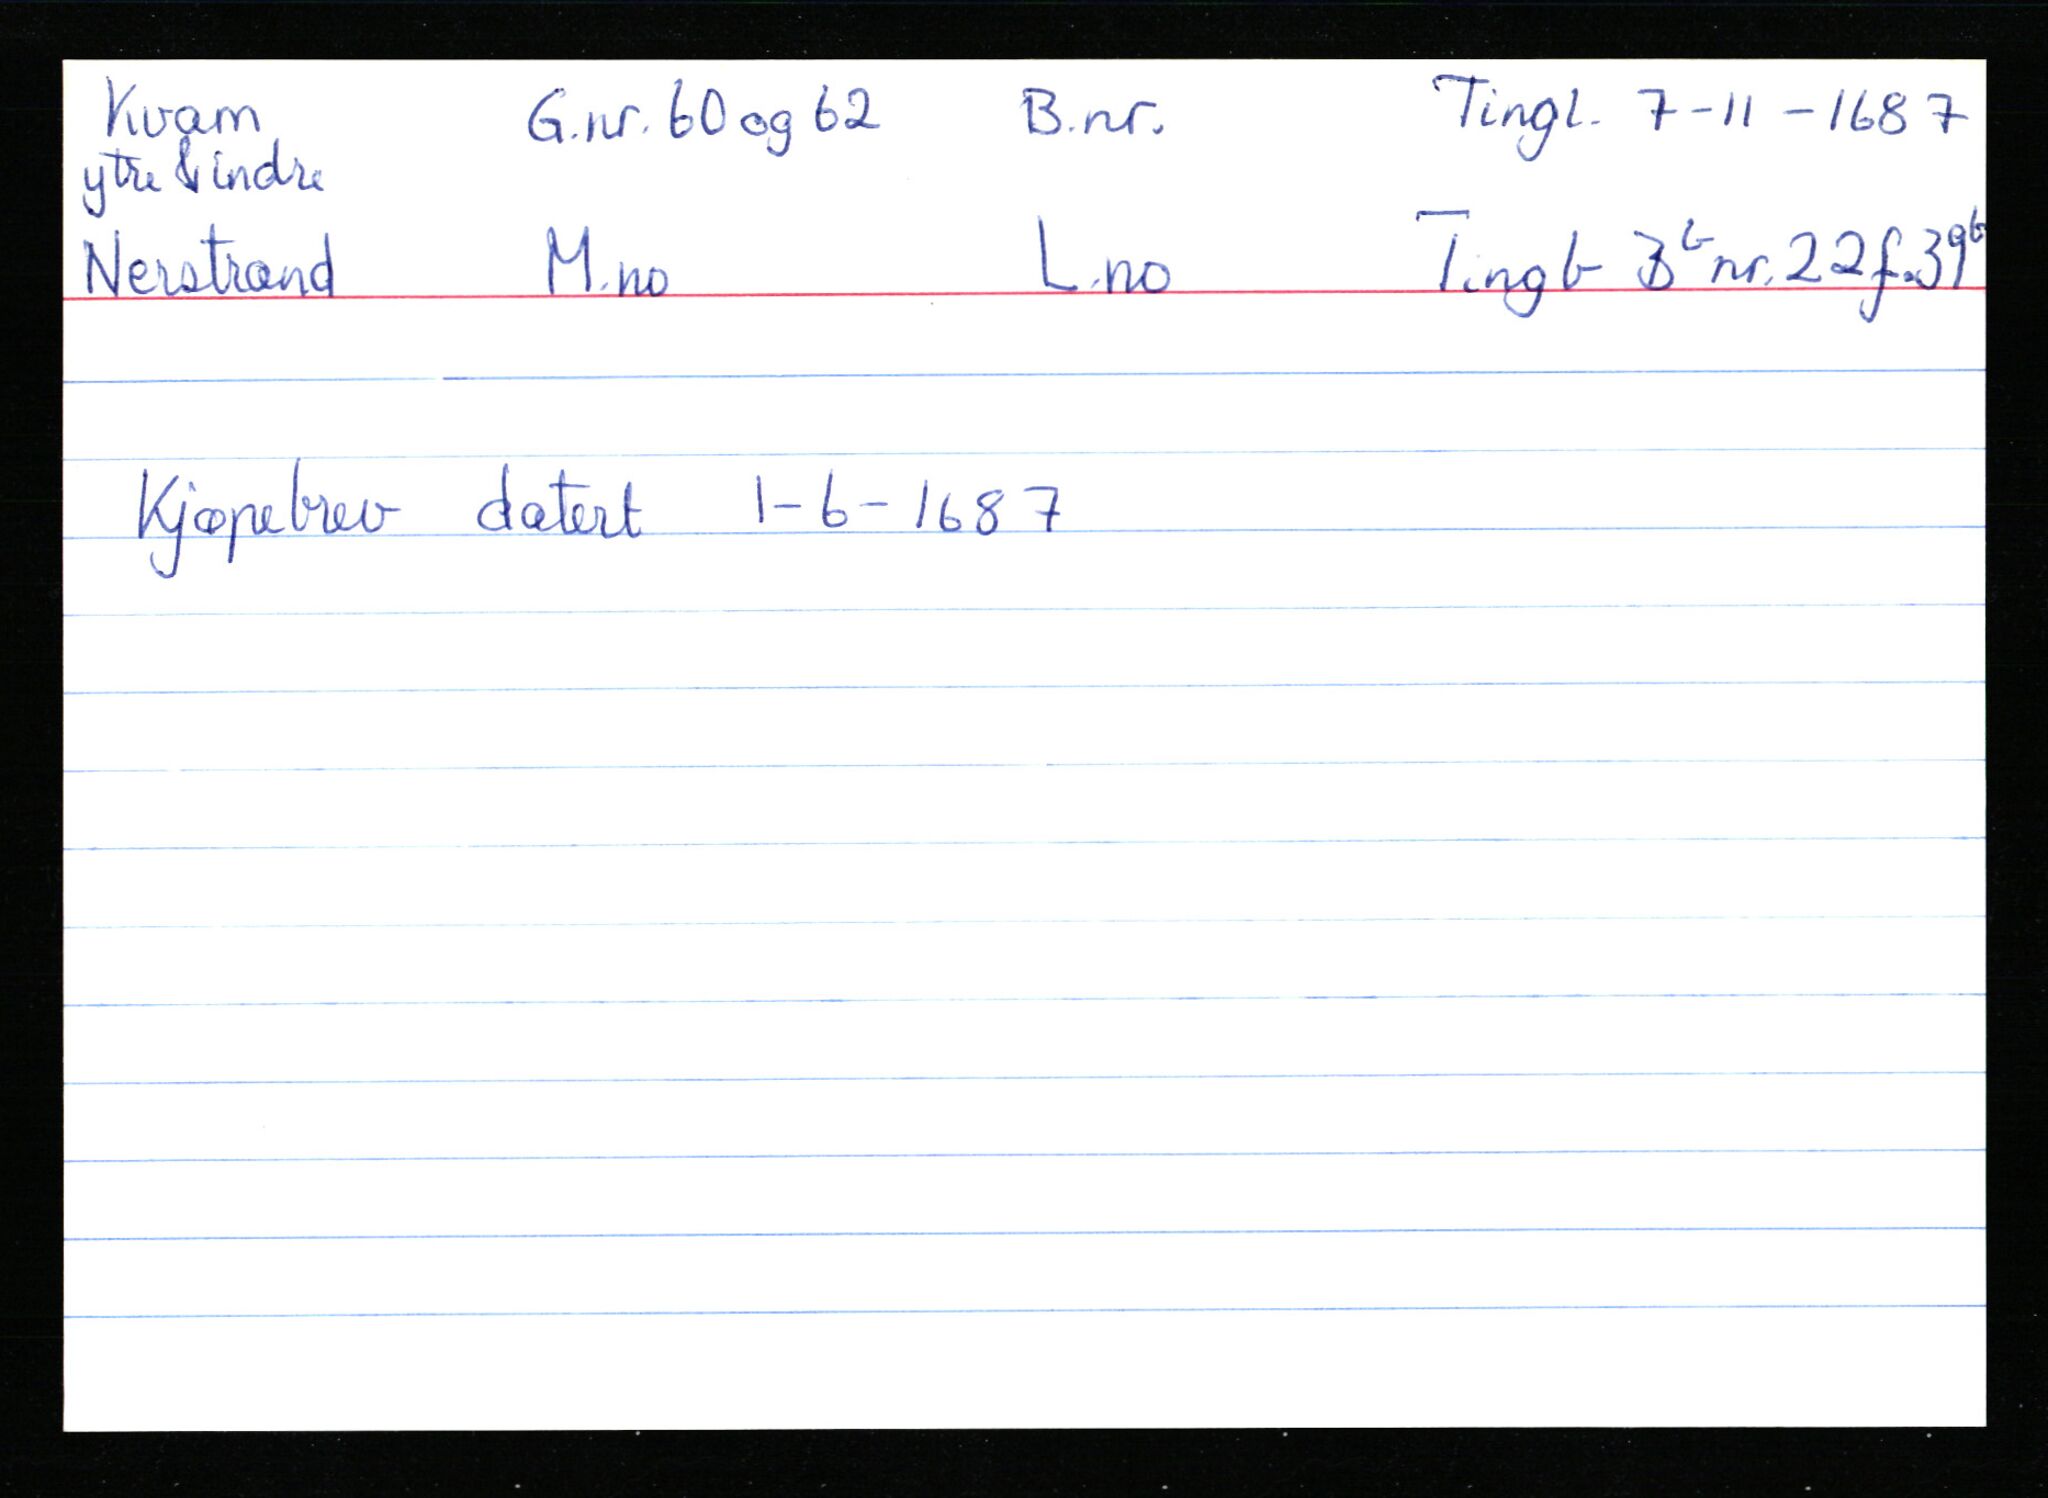 Kvam G.nr. 60 og 62 B.nr. Tingl. 7-11-1687
ytre & indre
Nerstrand M.no L.no Tingb 3ᵇ nr. 22 f. 39ᵇ
Kjøpebrev datert 1-6-1687